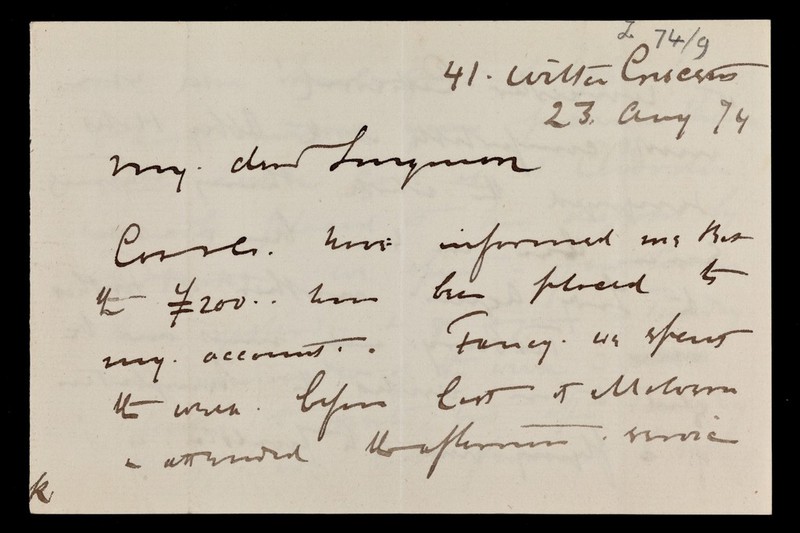 Z 74/9
41. Wilton Crescent
23. Aug 74
My. dear Ferguson
Coutts. have informed me that
the £200.. have been placed to
my. account.. Fancy. we spent
the week. before last at Malvern
& attended the afternoon. service
k